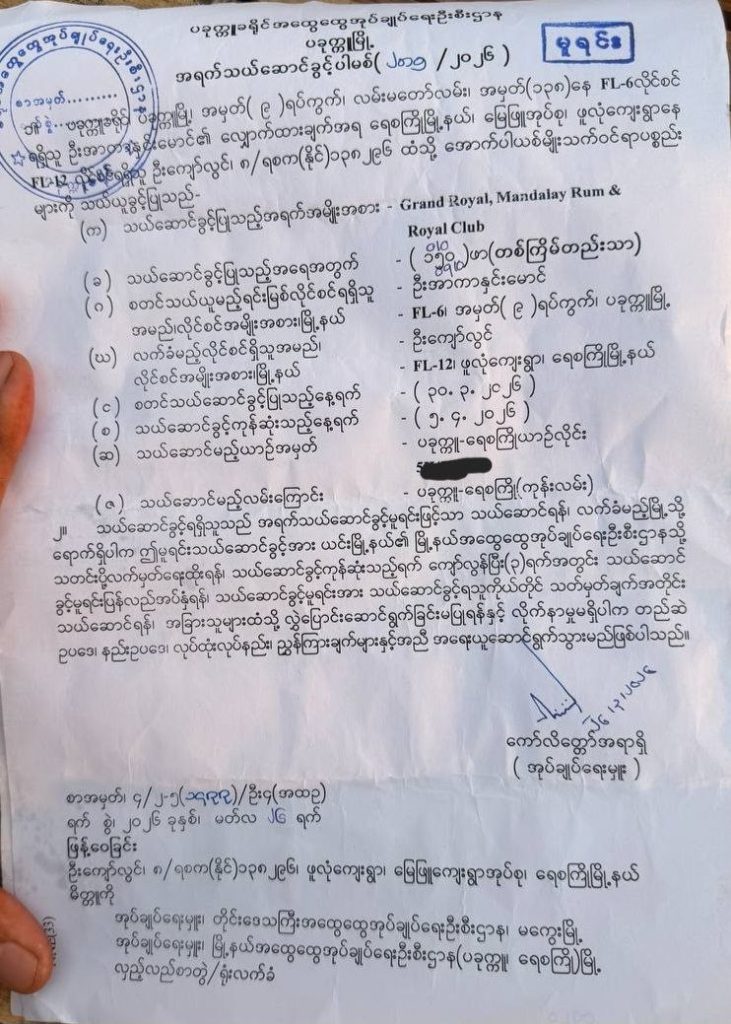 ပခုက္ကူခရိုင်အထွေထွေအုပ်ချုပ်ရေးဦးစီးဌာန
ပခုက္ကူမြို့
မူရင်း
အရက်သယ်ဆောင်ခွင့်ပါမစ်( /၂၀၂၆)
စာအမှတ်.........
ပခုက္ကူခရိုင်၊ ပခုက္ကူမြို့၊ အမှတ်(၉)ရပ်ကွက်၊ လမ်းမတော်လမ်း၊ အမှတ်(၁၃၈)နေ FL-6လိုင်စင်
ရရှိသူ ဦးအာကာနှင်းမောင်၏ လျှောက်ထားချက်အရ ရေစကြိုမြို့နယ်၊ မြေဖြူအုပ်စု၊ ဖူလုံကျေးရွာနေ
FL-12 လိုင်စင်ရရှိသူ ဦးကျော်လွင်၊ ၈/ရစက(နိုင်)၁၃၈၂၉၆ ထံသို့ အောက်ပါယစ်မျိုးသက်ဝင်ရာပစ္စည်း
များကို သယ်ယူခွင့်ပြုသည်-
(က) သယ်ဆောင်ခွင့်ပြုသည့်အရက်အမျိုးအစား - Grand Royal, Mandalay Rum &
Royal Club
(ခ) သယ်ဆောင်ခွင့်ပြုသည့်အရေအတွက် - (၁၅၀)ဖာ(တစ်ကြိမ်တည်းသာ)
(ဂ) စတင်သယ်ယူမည့်ရင်းမြစ်လိုင်စင်ရရှိသူ - ဦးအာကာနှင်းမောင်
အမည်၊လိုင်စင်အမျိုးအစား၊မြို့နယ် - FL-6၊ အမှတ်(၉)ရပ်ကွက်၊ ပခုက္ကူမြို့
(ဃ) လက်ခံမည့်လိုင်စင်ရရှိသူအမည်၊ - ဦးကျော်လွင်
လိုင်စင်အမျိုးအစား၊မြို့နယ် - FL-12၊ ဖူလုံကျေးရွာ၊ ရေစကြိုမြို့နယ်
(င) စတင်သယ်ဆောင်ခွင့်ပြုသည့်နေ့ရက် - (၃၀. ၃. ၂၀၂၆)
(စ) သယ်ဆောင်ခွင့်ကုန်ဆုံးသည့်နေ့ရက် - (၅. ၄. ၂၀၂၆)
(ဆ) သယ်ဆောင်မည့်ယာဉ်အမှတ် - ပခုက္ကူ-ရေစကြိုယာဉ်လိုင်း
(ဇ) သယ်ဆောင်မည့်လမ်းကြောင်း - ပခုက္ကူ-ရေစကြို(ကုန်းလမ်း)
၂။ သယ်ဆောင်ခွင့်ရရှိသူသည် အရက်သယ်ဆောင်ခွင့်မူရင်းဖြင့်သာ သယ်ဆောင်ရန်၊ လက်ခံမည့်မြို့သို့
ရောက်ရှိပါက ဤမူရင်းသယ်ဆောင်ခွင့်အား ယင်းမြို့နယ်၏ မြို့နယ်အထွေထွေအုပ်ချုပ်ရေးဦးစီးဌာနသို့
သတင်းပို့လက်မှတ်ရေးထိုးရန်၊ သယ်ဆောင်ခွင့်ကုန်ဆုံးသည့်ရက် ကျော်လွန်ပြီး(၃)ရက်အတွင်း သယ်ဆောင်
ခွင့်မူရင်းပြန်လည်အပ်နှံရန်၊ သယ်ဆောင်ခွင့်မူရင်းအား သယ်ဆောင်ခွင့်ရသူကိုယ်တိုင် သတ်မှတ်ချက်အတိုင်း
သယ်ဆောင်ရန်၊ အခြားသူများထံသို့ လွှဲပြောင်းဆောင်ရွက်ခြင်းမပြုရန်နှင့် လိုက်နာမှုမရှိပါက တည်ဆဲ
ဥပဒေ၊ နည်းဥပဒေ၊ လုပ်ထုံးလုပ်နည်း၊ ညွှန်ကြားချက်များနှင့်အညီ အရေးယူဆောင်ရွက်သွားမည်ဖြစ်ပါသည်။
၂၆/၃/၂၀၂၆
ကော်လိတ္တော်အရာရှိ
(အုပ်ချုပ်ရေးမှူး)
စာအမှတ်၊ ၄/၂-၅( )/ဦး၄(အထဉ)
ရက် စွဲ၊ ၂၀၂၆ ခုနှစ်၊ မတ်လ ၂၆ ရက်
ဖြန့်ဝေခြင်း
ဦးကျော်လွင်၊ ၈/ရစက(နိုင်)၁၃၈၂၉၆၊ ဖူလုံကျေးရွာ၊ မြေဖြူကျေးရွာအုပ်စု၊ ရေစကြိုမြို့နယ်
မိတ္တူကို
အုပ်ချုပ်ရေးမှူး၊ တိုင်းဒေသကြီးအထွေထွေအုပ်ချုပ်ရေးဦးစီးဌာန၊ မကွေးမြို့
အုပ်ချုပ်ရေးမှူး၊ မြို့နယ်အထွေထွေအုပ်ချုပ်ရေးဦးစီးဌာန(ပခုက္ကူ၊ ရေစကြို)မြို့
လှည့်လည်စာတွဲ/ရုံးလက်ခံ